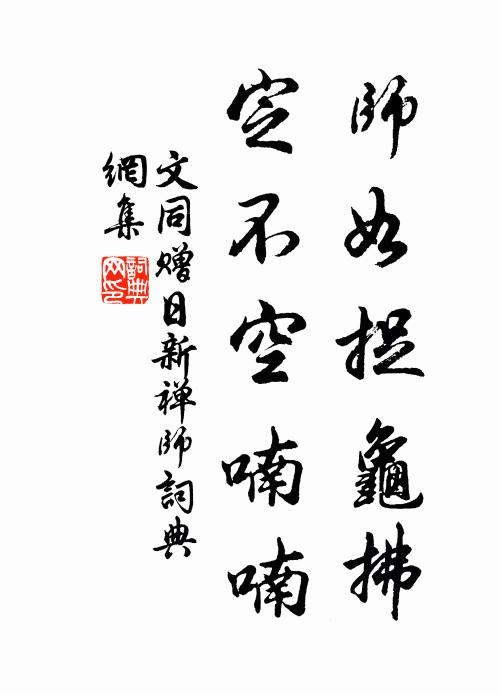 師如捉龜拂
定不空喃喃
文同贈日新禅師詞典
網集
詞典网印